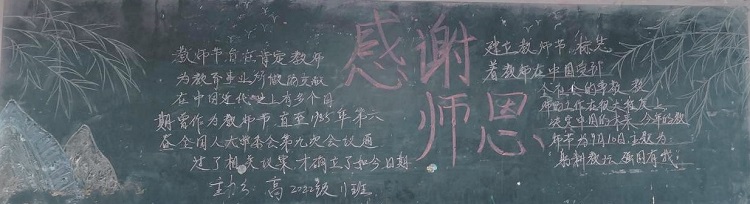 教师节旨在肯定教师
为教育事业所做的贡献
在中国近代史上有多个日
期曾作为教师节 直至1985年第六
届全国人大常委会第九次会议通
过了相关议案 才确立了如今日期
主办: 高2022级11班
感谢
师恩
建立教师节 标志
着教师在中国受到
全社会的尊敬 教
师的工作在很大程度上
决定中国的未来 今年的教
师节为9月10日 主题为:
躬耕教坛 强国有我!